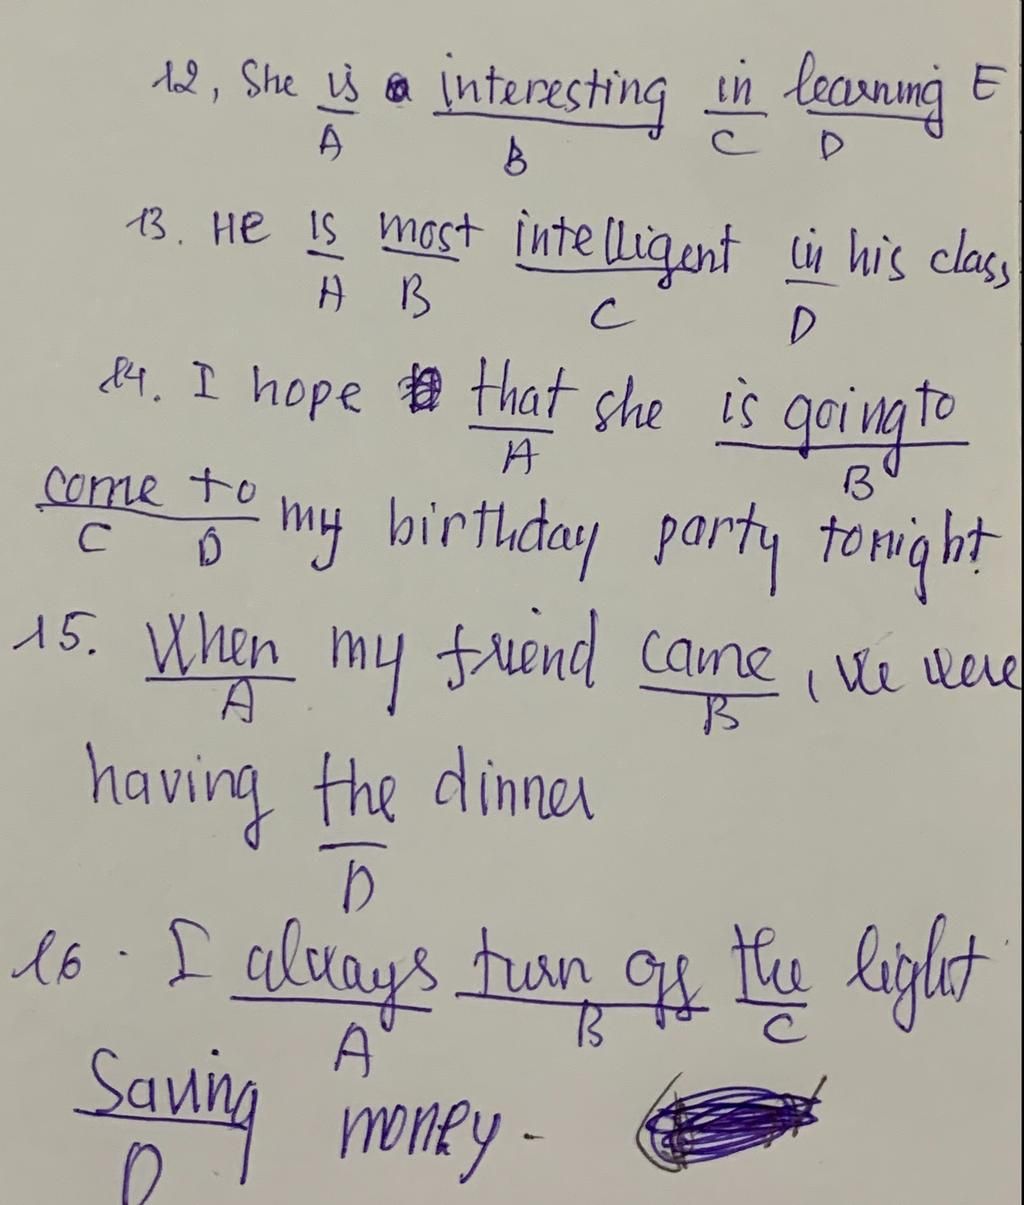 12, She is interesting in learning E
A B C D
13. He is most intelligent in his class
A B C D
14. I hope that she is going to
A B
come to my birthday party tonight.
C D
15. When my friend came, we were
A B
having the dinner
D
16. I always turn off the light
A B C
Saving money.
D